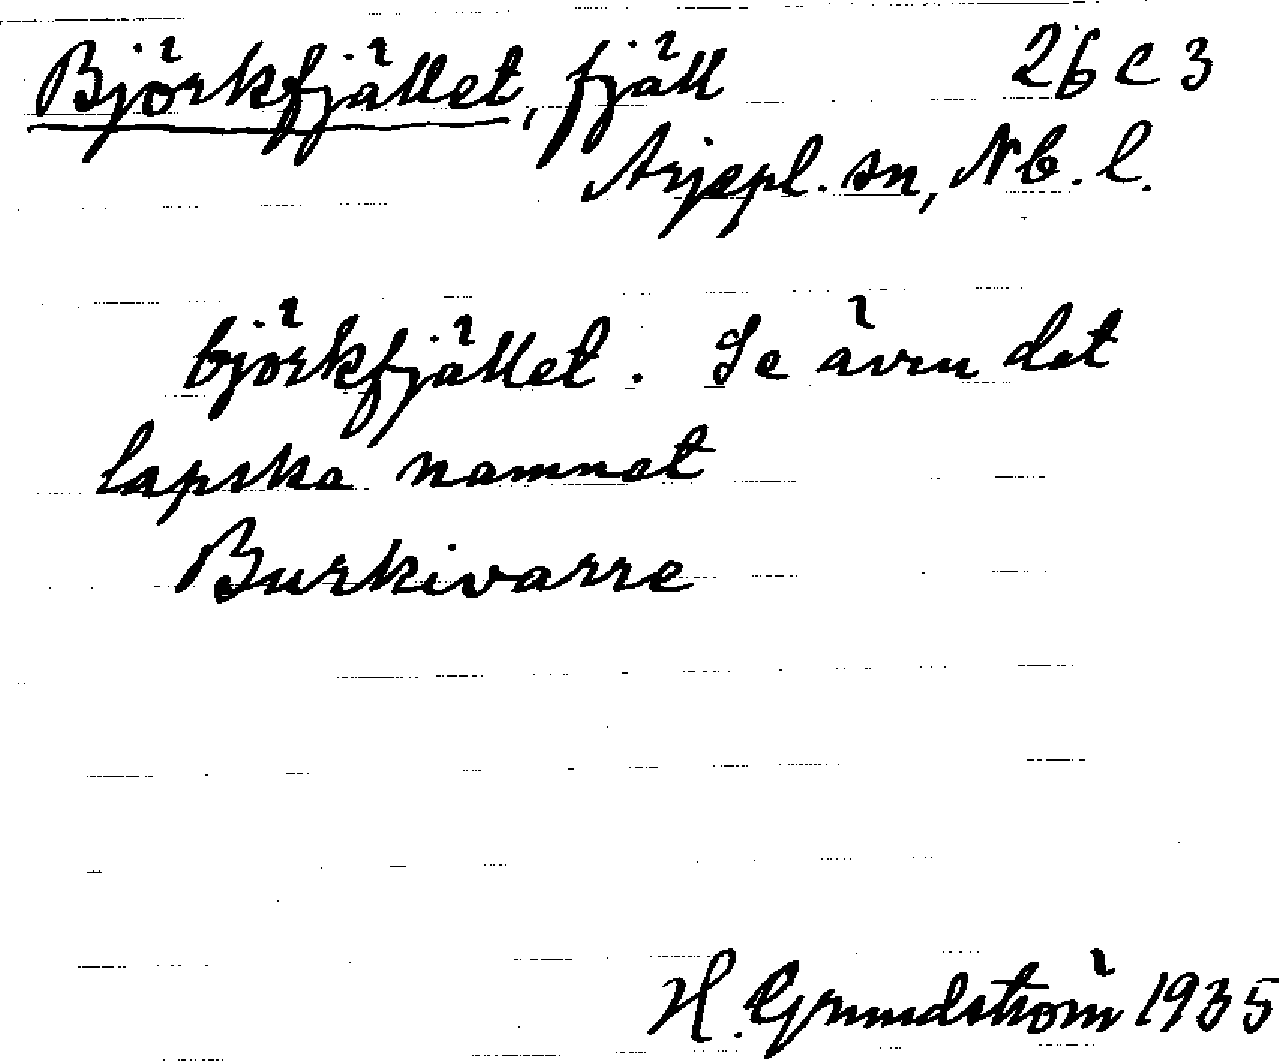 Björkfjället, fjäll 26 C 3
Arjepl. sn, Nb. l.
björkfjället. Se även det
lapska namnet
Burkivarre
H. Grundström 1935